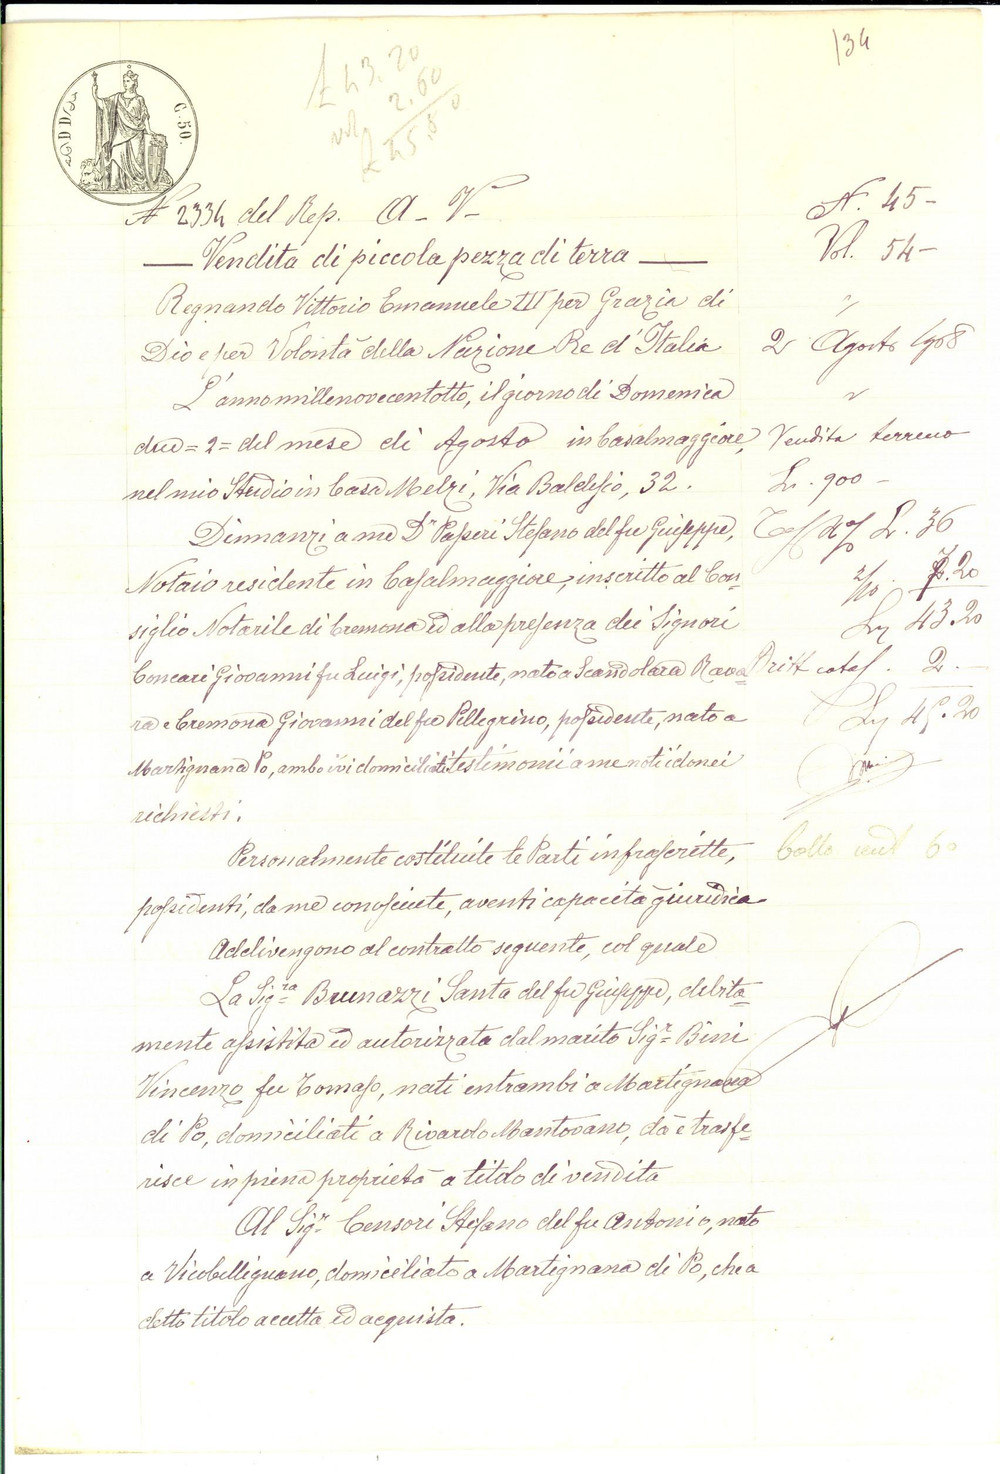 134
£ 43.20
2.60
£ 45.80
C. 50.
N 2334 del Rep. A - V-
Vendita di piccola pezza di terra
Regnando Vittorio Emanuele III per Grazia di
Dio e per Volontà della Nazione Re d'Italia
L'anno millenovecentotto, il giorno di Domenica
due = 2 = del mese di Agosto in Casalmaggiore,
nel mio Studio in Casa Melzi, Via Baldesio, 32.
Dinnanzi a me Dr Passeri Stefano del fu Giuseppe,
Notaio residente in Casalmaggiore, inscritto al Con-
siglio Notarile di Cremona ed alla presenza dei Signori
Concari Giovanni fu Luigi, possidente, nato a Scandolara Rava=
ra e Cremona Giovanni del fu Pellegrino, possidente, nato a
Martignana Po, ambo ivi domiciliati testimonii a me noti idonei
richiesti.
Personalmente costituite le Parti infrascritte,
possidenti, da me conosciute, aventi capacità giuridica
Addivengono al contratto seguente, col quale
La Sig.ra Brunazzi Santa del fu Giuseppe, debita=
mente assistita ed autorizzata dal marito Sig.r Bini
Vincenzo fu Tomaso, nati entrambi a Martignana
di Po, domiciliati a Rivarolo Mantovano, dà e trasfe=
risce in piena proprietà a titolo di vendita
Al Sig.r Censori Stefano del fu Antonio, nato
a Vicobellignano, domiciliato a Martignana di Po, che a
detto titolo accetta ed acquista.
N. 45-
Vol. 54-
"
2 Agosto 1908
"
Vendita terreno
L. 900 -
L. 36
2/10 . 7.20
43.20
Dritt catas. 2. -
45.20
60